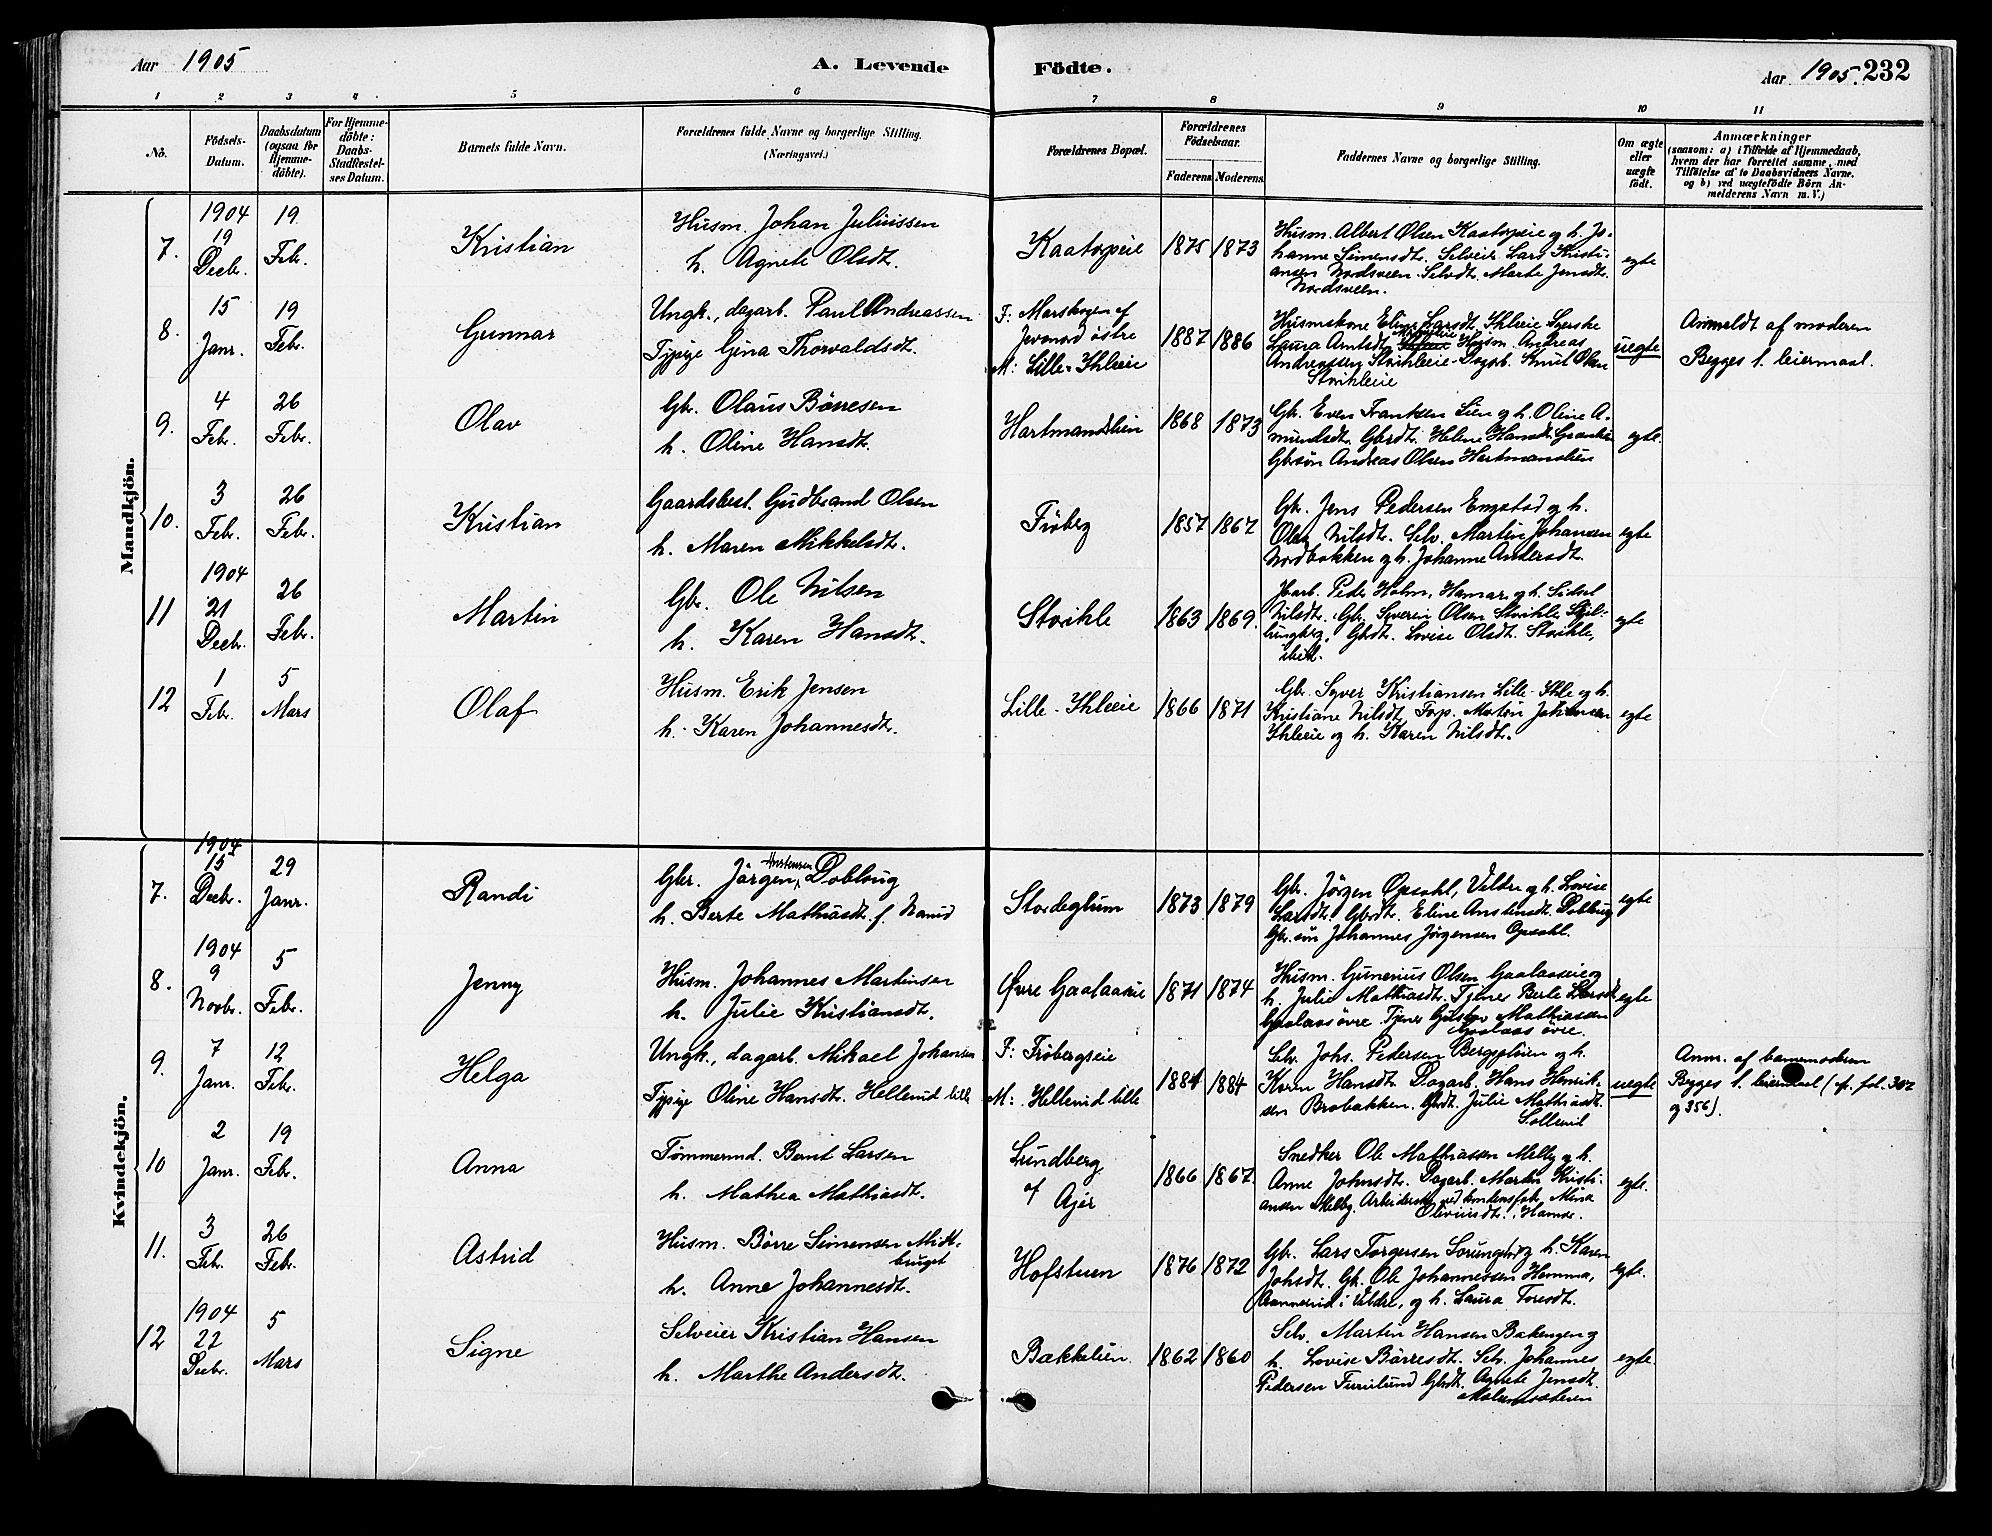 Aar 1905
A. Levende Födte.
Aar 1905. 232
1 2 3 4 5 6 7 8 9 10 11
No.
Födsels-
Datum.
Daabsdatum
(ogsaa for
Hjemme-
döbte).
For Hjemme-
döbte:
Daabs-
Stadfæstel-
ses Datum.
Barnets fulde Navn.
Forældrenes fulde Navne og borgerlige Stilling.
(Næringsvei.)
Forældrenes Bopæl.
Forældrenes
Födselsaar.
Faderens. Moderens.
Faddernes Navne og borgerlige Stilling.
Om ægte
eller
uægte
födt.
Anmærkninger
(saasom: a) i Tilfælde af Hjemmedaab,
hvem der har forrettet samme, med
Tilföielse af to Daabsvidners Navne.
og b) ved uægtefödte Börn An-
melderens Navn m. V.)
Mandkjön.
7.
1904
19
Decbr.
19
Febr.
Kristian
Husm. Johan Juliussen
h. Agnete Olsdt.
Kaatorpeie
1875 1873
Husm. Albert Olsen Kaatorpeie og h. Jo-
hanne Simensdt. Selveier Lars Kristi-
ansen Nordsveen. Selvdt. Marte Jensdt.
Nordsveen.
egte
8.
15
Janr.
19
Febr.
Gunnar
Ungk., dagarb. Paul Andreassen
Tjpige Gina Thorvaldsdt.
F: Marskogen af
Jevanord östre
M: Lille-Ihleeie
1887 1886
Husmskone Eline Larsdt. Ihleeie
Laura Arntsdt. Husm. Andreas
Andreassen Storihleeie Dagarb. Knut Olsen
Storihleeie
uegte
Anmeldt af moderen
Begges 1. leiermaal.
9.
4
Febr.
26
Febr.
Olav
Gbr. Olaus Börresen
h. Oline Hansdt.
Hartmandslien
1868 1873
Gbr. Even Frantzen Lien og h. Oline A-
mundsdt. Gbrdt. Helene Hansdt.
Gbrsön Andreas Olsen Hartmanslien
egte.
10.
3
Febr.
26
Febr.
Kristian
Gaardsbest. Gudbrand Olsen
h. Maren Mikkelsdt.
Fröberg
1857 1867
Gbr. Jens Pedersen Engstad og h.
Nilsdt. Selv. Martin Johansen
Nordbakken og h. Johanne Andersdt.
egte
11
1904
21
Decbr.
26
Febr.
Martin
Gbr. Ole Nilsen
h. Karen Hansdt.
Storihle
1863 1869.
Peder Holm, Hamar og h. Sidsel
Nilsdt. Gbr. Syverin Olsen Storihle,
Gbrdt. Lovise Olsdt. Storihle,
ibid.
egte
12
1
Febr.
5
Mars
Olaf
Husm. Erik Jensen
h. Karen Johannesdt.
Lille-Ihleeie
1866 1871
Gbr. Syver Kristiansen Lille-Ihle og h.
Kristiane Nilsdt. Forp. Martin Johansen
Ihleeie og h. Karen Nilsdt.
egte
Kvindekjön.
7.
1904
15
Decbr.
29
Janr.
Randi
Gbr. Jörgen Anstensen Doblaug
h. Berte Mathiasdt. f. Narud
Stordeglum
1873 1879
Gbr. Jörgen Opsahl, Veldre og h. Lovise
Larsdt. Gbrdt. Eline Anstensdt. Doblaug
Gbr.sön Johannes Jörgensen Opsahl.
egte
8.
1904
9
Novbr.
5
Febr.
Jenny
Husm. Johannes Martinsen
h. Julie Kristiansdt.
Övre Gaalaaseie
1871 1874
Husm. Gunerius Olsen Gaalaaseie og
h. Julie Mathiasdt. Tjener Berte Larsdt.
Gaalaas övre. Tjener Gustav Mathiassen
Gaalaas övre.
egte
9.
7
Janr.
12
Febr.
Helga
Ungk., dagarb. Mikael Johansen
Tjpige Oline Hansdt. Hellerud lille
F: Fröbergseie
M: Hellerud lille
1884 1884
Selv. Johs. Pedersen Bergsplien og h.
Karen Hansdt. Dagarb. Hans Henrik-
sen Brobakken. Gbrdt. Julie Mathiasdt.
Sollerud
uegte
Anm. af barnemoderen
Begges 1. leiermaal (cfr. fol. 302
og 356).
10
2
Janr.
19
Febr.
Anna
Tömmermd. Bernt Larsen
h. Mathea Mathiasdt.
Lundberg
af
Ajer
1866 1867.
Snedker Ole Mathiassen Melby og h.
Anne Johnsdt. Dagarb. Martin Kristi-
ansen Melby. Arbeiderske ved kondensfab. Mina
Oliviusdt., Hamar.
egte.
11.
3
Febr.
26
Febr.
Astrid
Husm. Börre Simensen Midt-
h. Anne Johannesdt.
Hofstuen
1876 1872
Gbr. Lars Torgersen Lorungberg h. Karen
Johsdt. Gbr. Ole Johannessen Hamma,
i Veldre, og h. Laura Toresdt.
egte.
12
1904
22
Decbr.
5
Mars
Signe
Selveier Kristian Hansen
h. Marthe Andersdt.
Bækkelien.
1862 1860
Selv. Martin Hansen Bakengen og
h. Lovise Börresdt. Selv. Johannes
Pedersen Furulund Gbrdt. Agnete Jensdt.
egte.